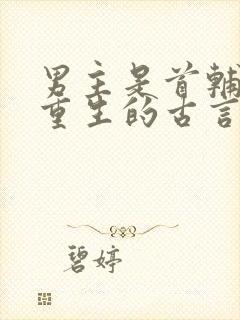 男主是首辅
重生的古言
碧婷